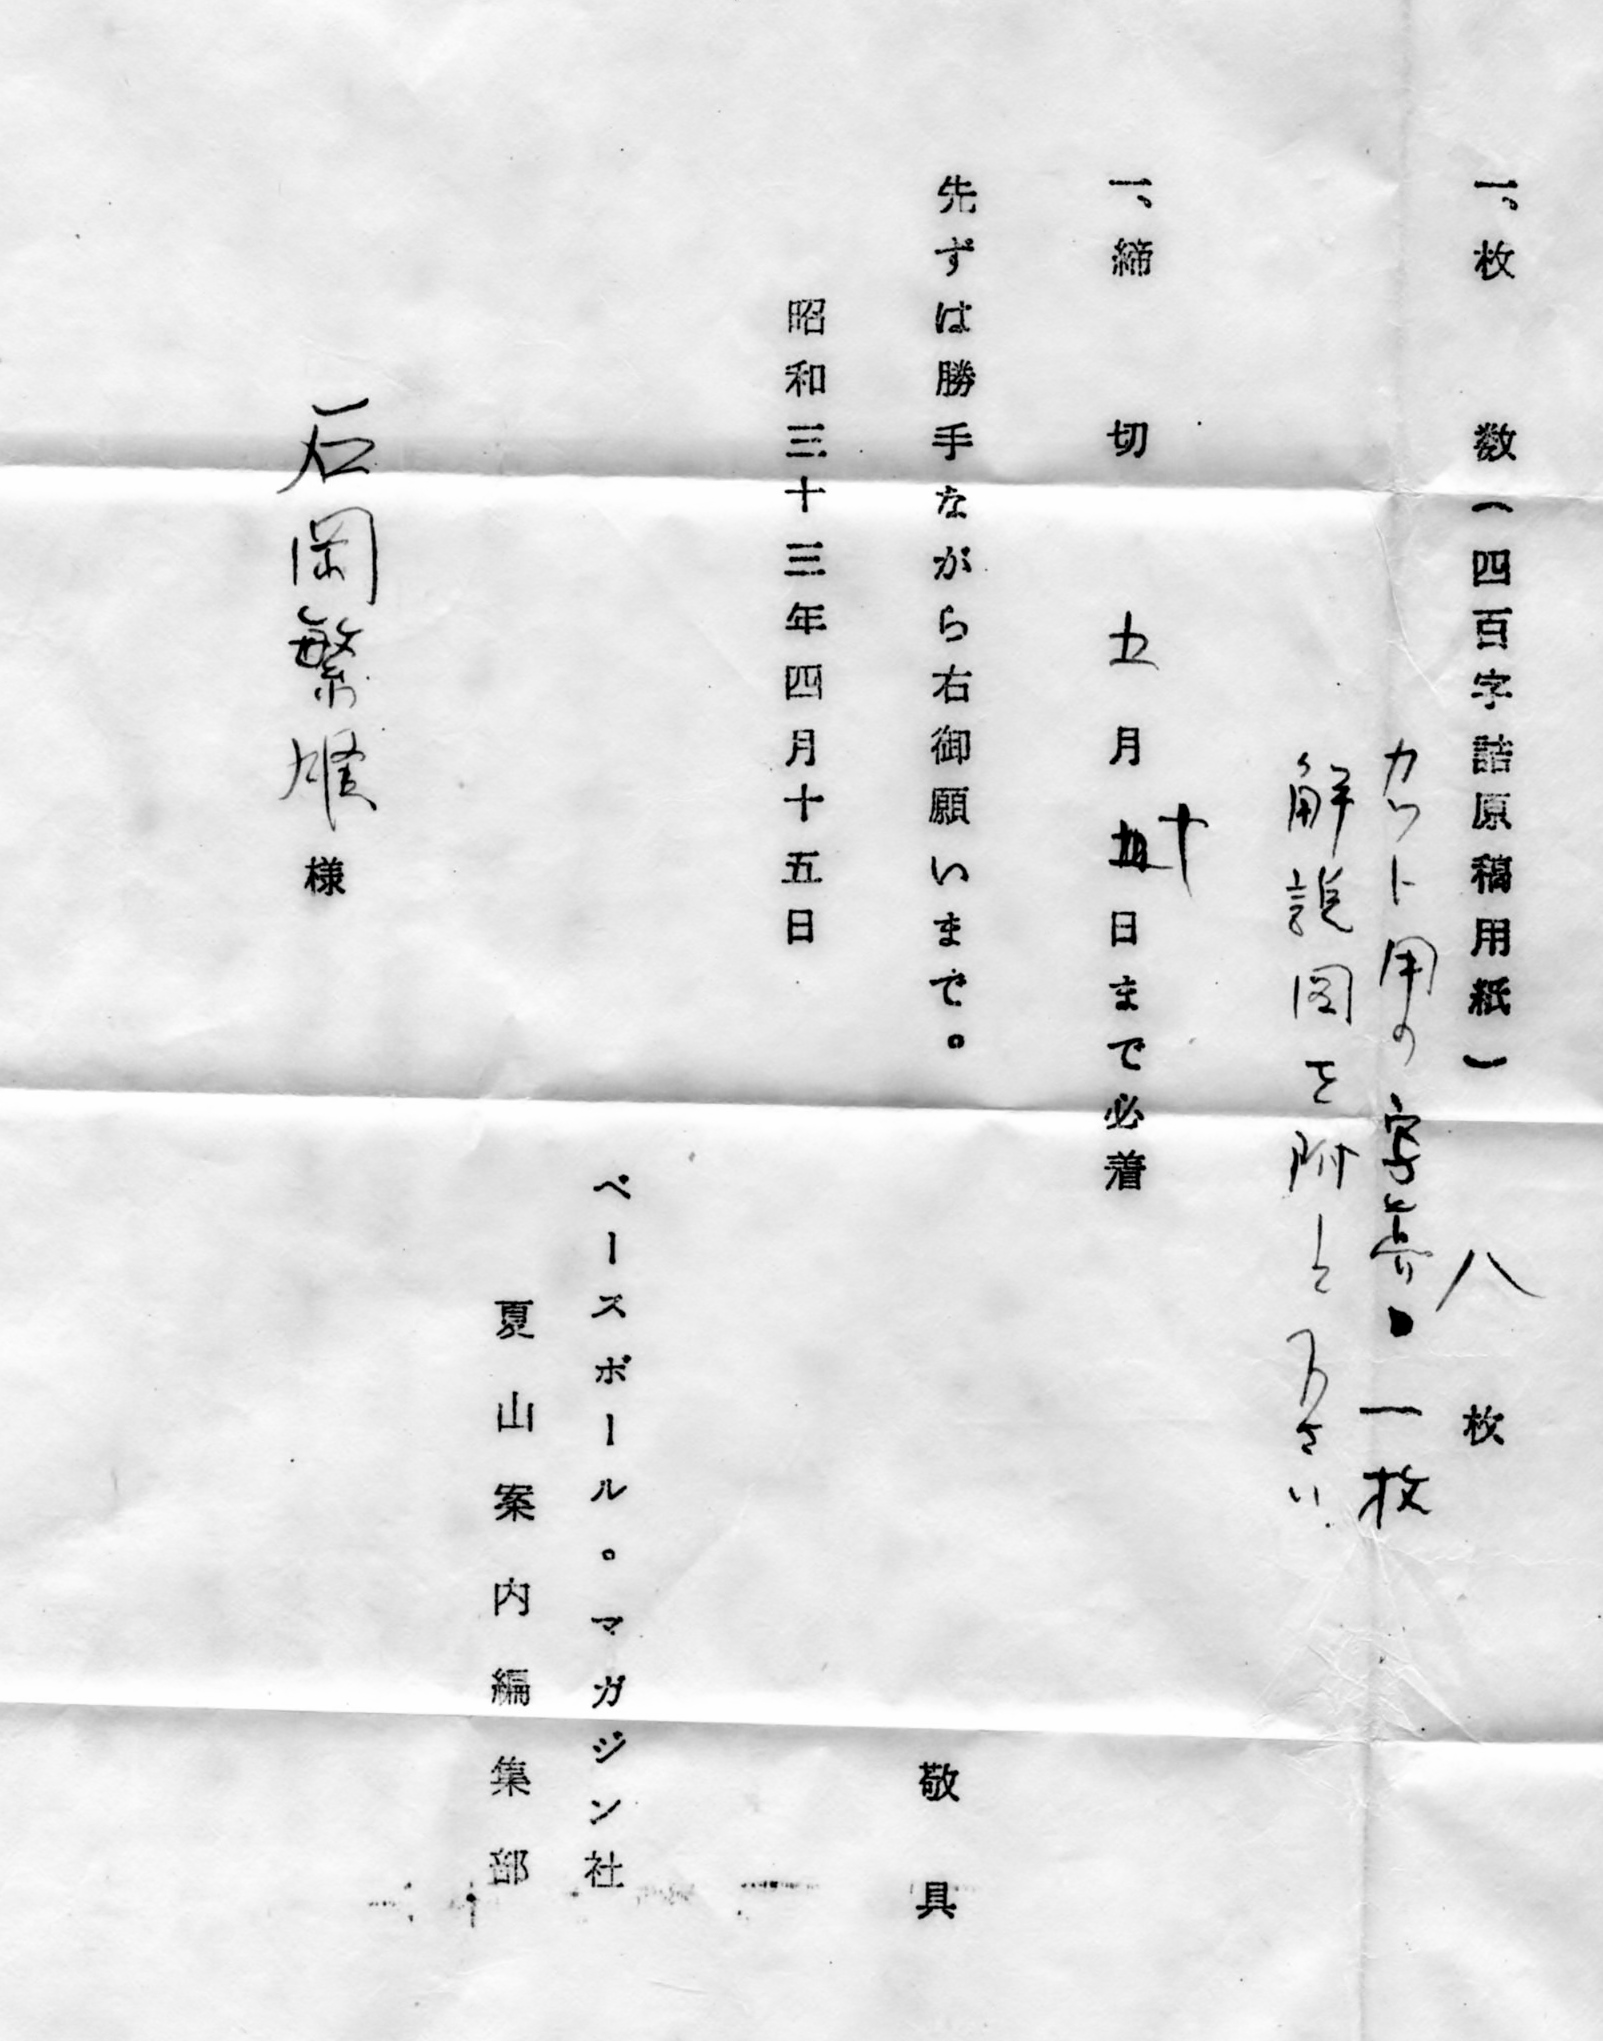 一、枚数(四百字詰原稿用紙)八枚
カット用の写真一枚
解説図を附して下さい
一、締切 五月十日まで必着
先ずは勝手ながら右御願いまで。
敬具
昭和三十三年四月十五日
ベースボール。マガジン社
夏山案内編集部
石岡繁雄様